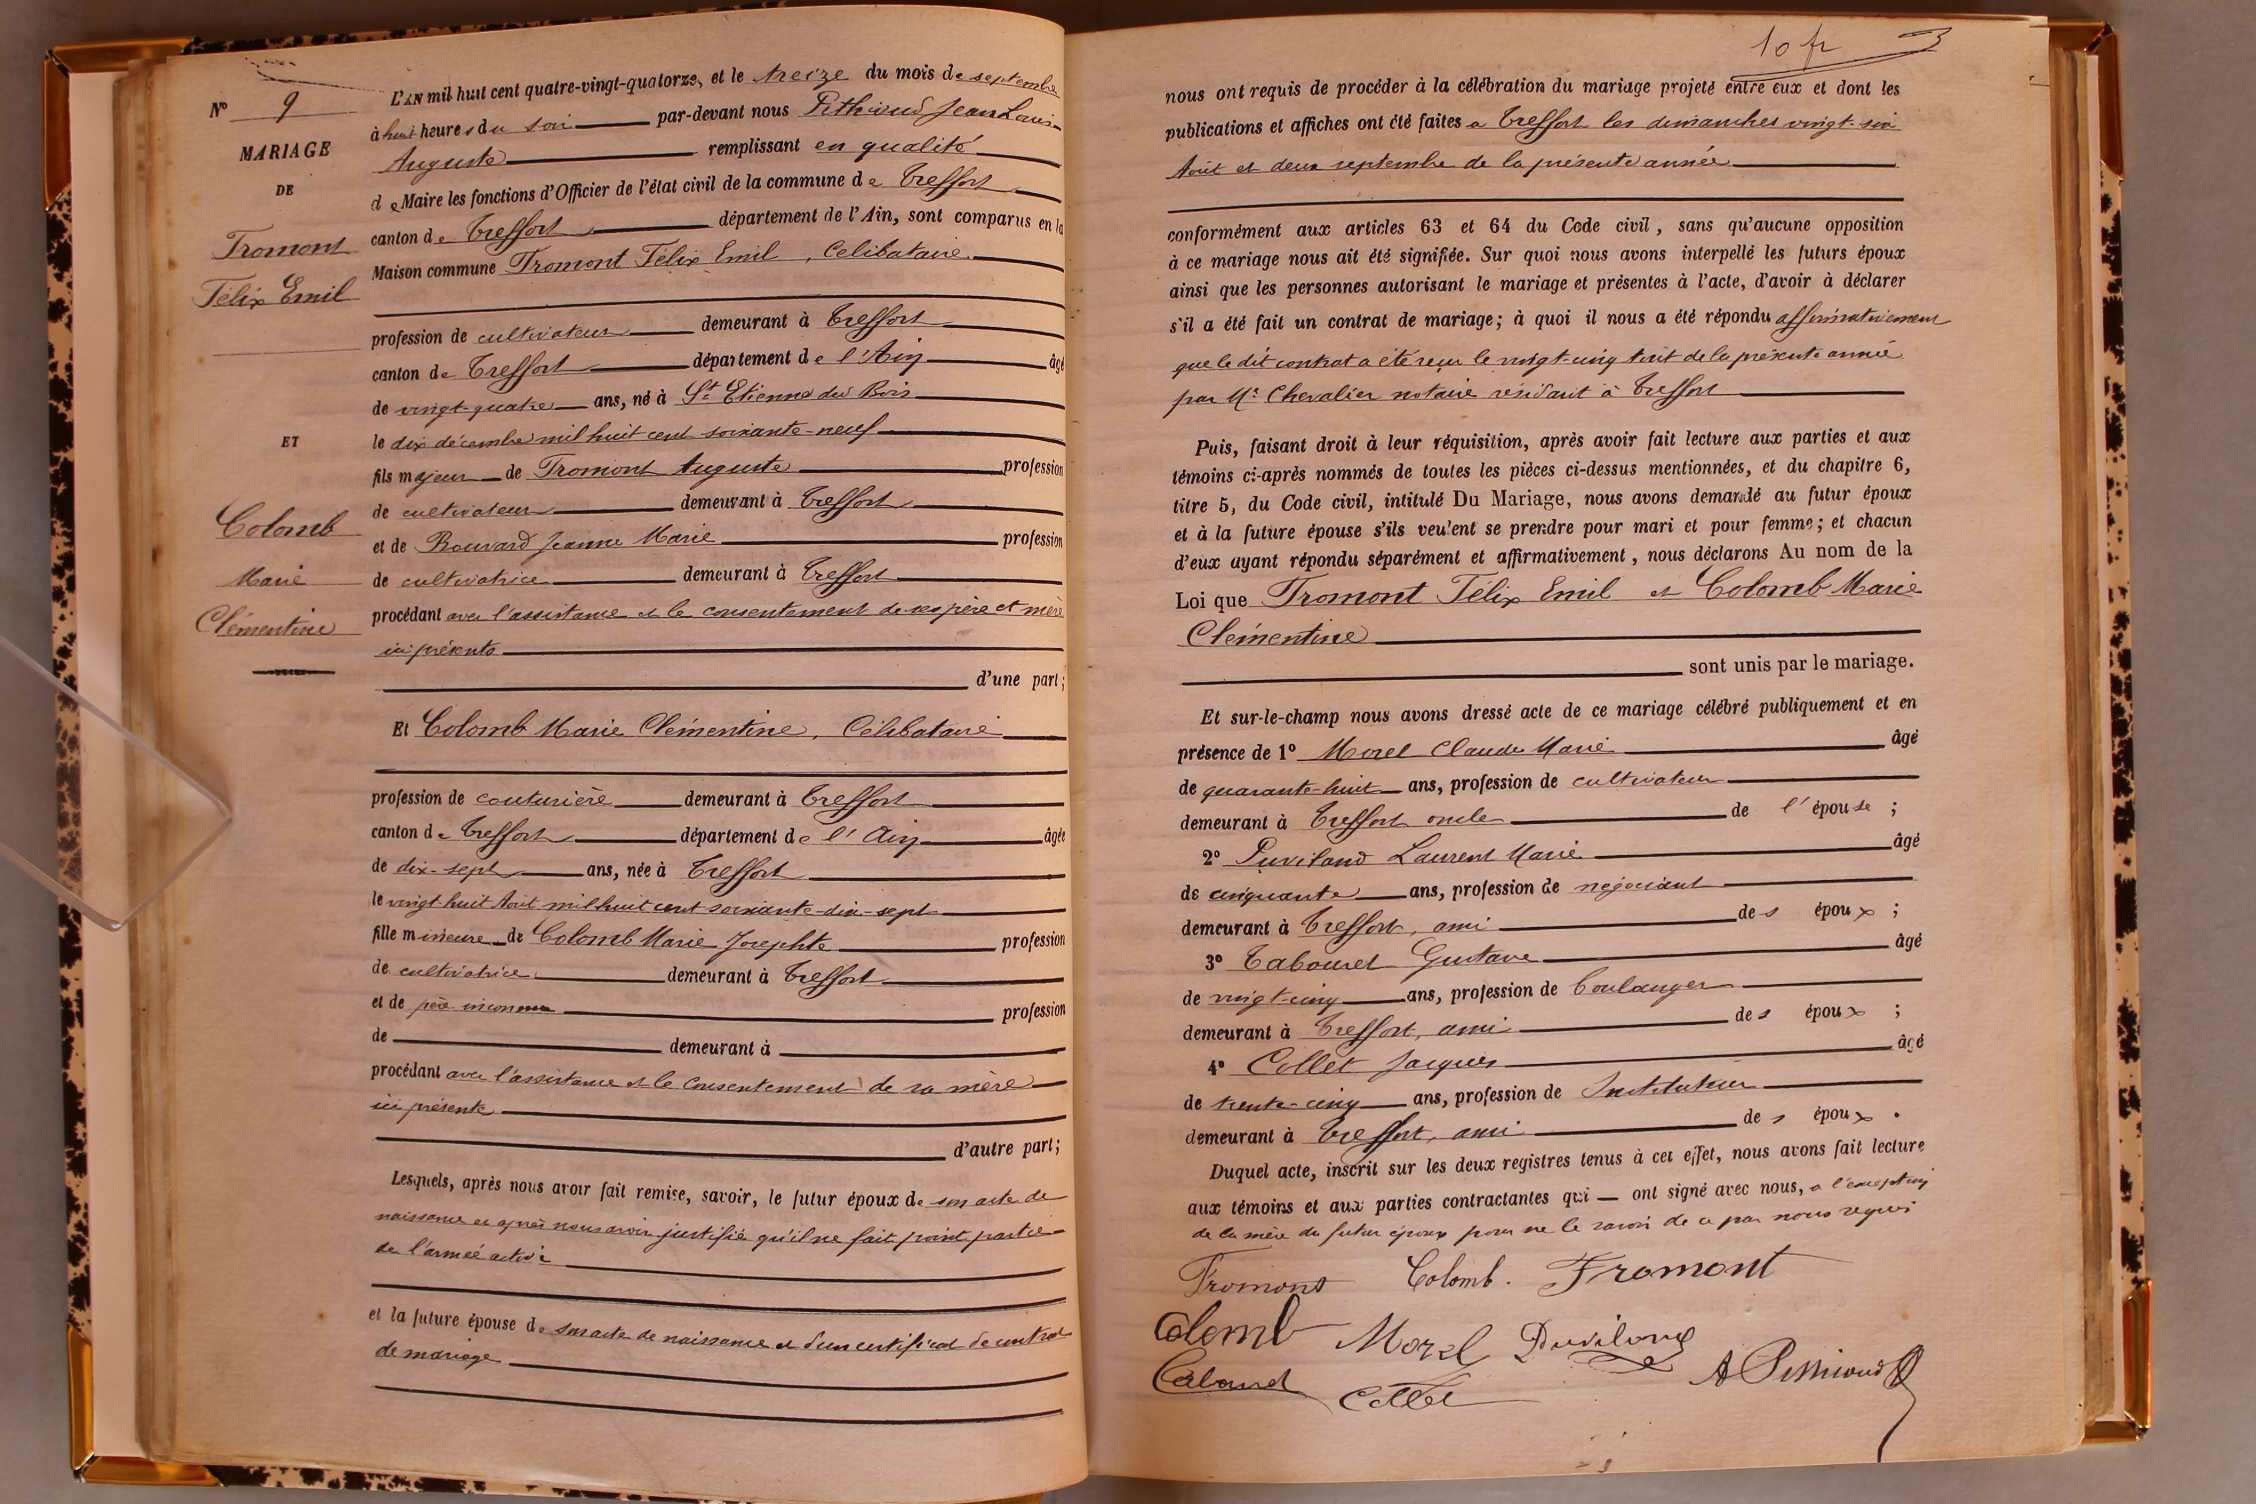 N° 9
MARIAGE
DE
Fromont
Félix Emil
ET
Colomb
Marie
Clémentine
L'AN mil huit cent quatre-vingt-quatorze, et le treize du mois de septembre
à huit heures du soir par-devant nous Pithioud Jean Louis
Auguste remplissant en qualité
de Maire les fonctions d'Officier de l'état civil de la commune de Treffort
canton de Treffort département de l'Ain, sont comparus en la
Maison commune Fromont Félix Emil, Célibataire
profession de cultivateur demeurant à Treffort
canton de Treffort département de l'Ain âgé
de vingt-quatre ans, né à St Etienne du Bois
le dix décembre mil huit cent soixante-neuf
fils majeur de Fromont Auguste profession
de cultivateur demeurant à Treffort
et de Bouvard Jeanne Marie profession
de cultivatrice demeurant à Treffort
procédant avec l'assistance et le consentement de ses père et mère
ici présents
d'une part;
Et Colomb Marie Clémentine, Célibataire
profession de couturière demeurant à Treffort
canton de Treffort département de l'Ain âgée
de dix-sept ans, née à Treffort
le vingt huit Août mil huit cent soixante-dix-sept
fille mineure de Colomb Marie Josephte profession
de cultivatrice demeurant à Treffort
et de père inconnu profession
de demeurant à
procédant avec l'assistance et le consentement de sa mère
ici présente
d'autre part;
Lesquels, après nous avoir fait remise, savoir, le futur époux de son acte de
naissance et après nous avoir justifié qu'il ne fait point partie
de l'armée active
et la future épouse de son acte de naissance et d'un certificat de contrat
de mariage
10 fr
nous ont requis de procéder à la célébration du mariage projeté entre eux et dont les
publications et affiches ont été faites à Treffort les dimanches vingt-six
Août et deux septembre de la présente année
conformément aux articles 63 et 64 du Code civil, sans qu'aucune opposition
à ce mariage nous ait été signifiée. Sur quoi nous avons interpellé les futurs époux
ainsi que les personnes autorisant le mariage et présentes à l'acte, d'avoir à déclarer
s'il a été fait un contrat de mariage; à quoi il nous a été répondu affirmativement
que le dit contrat a été reçu le vingt-cinq Août de la présente année
par Me Chevalier notaire résidant à Treffort
Puis, faisant droit à leur réquisition, après avoir fait lecture aux parties et aux
témoins ci-après nommés de toutes les pièces ci-dessus mentionnées, et du chapitre 6,
titre 5, du Code civil, intitulé Du Mariage, nous avons demandé au futur époux
et à la future épouse s'ils veulent se prendre pour mari et pour femme; et chacun
d'eux ayant répondu séparément et affirmativement, nous déclarons Au nom de la
Loi que Fromont Félix Emil et Colomb Marie
Clémentine
sont unis par le mariage.
Et sur-le-champ nous avons dressé acte de ce mariage célébré publiquement et en
présence de 1° Morel Claude Marie âgé
de quarante-huit ans, profession de cultivateur
demeurant à Treffort oncle de l'épouse;
2° Puviland Laurent Marie âgé
de cinquante ans, profession de négociant
demeurant à Treffort, ami des époux;
3° Tabouret Gustave âgé
de vingt-cinq ans, profession de boulanger
demeurant à Treffort, ami des époux;
4° Collet Jacques âgé
de trente-cinq ans, profession de Instituteur
demeurant à Treffort, ami des époux.
Duquel acte, inscrit sur les deux registres tenus à cet effet, nous avons fait lecture
aux témoins et aux parties contractantes qui ont signé avec nous, à l'exception
de la mère du futur époux pour ne le savoir de ce par nous requis
Fromont Colomb. Fromont
Colomb Morel Puviland
Collet A Pithioud